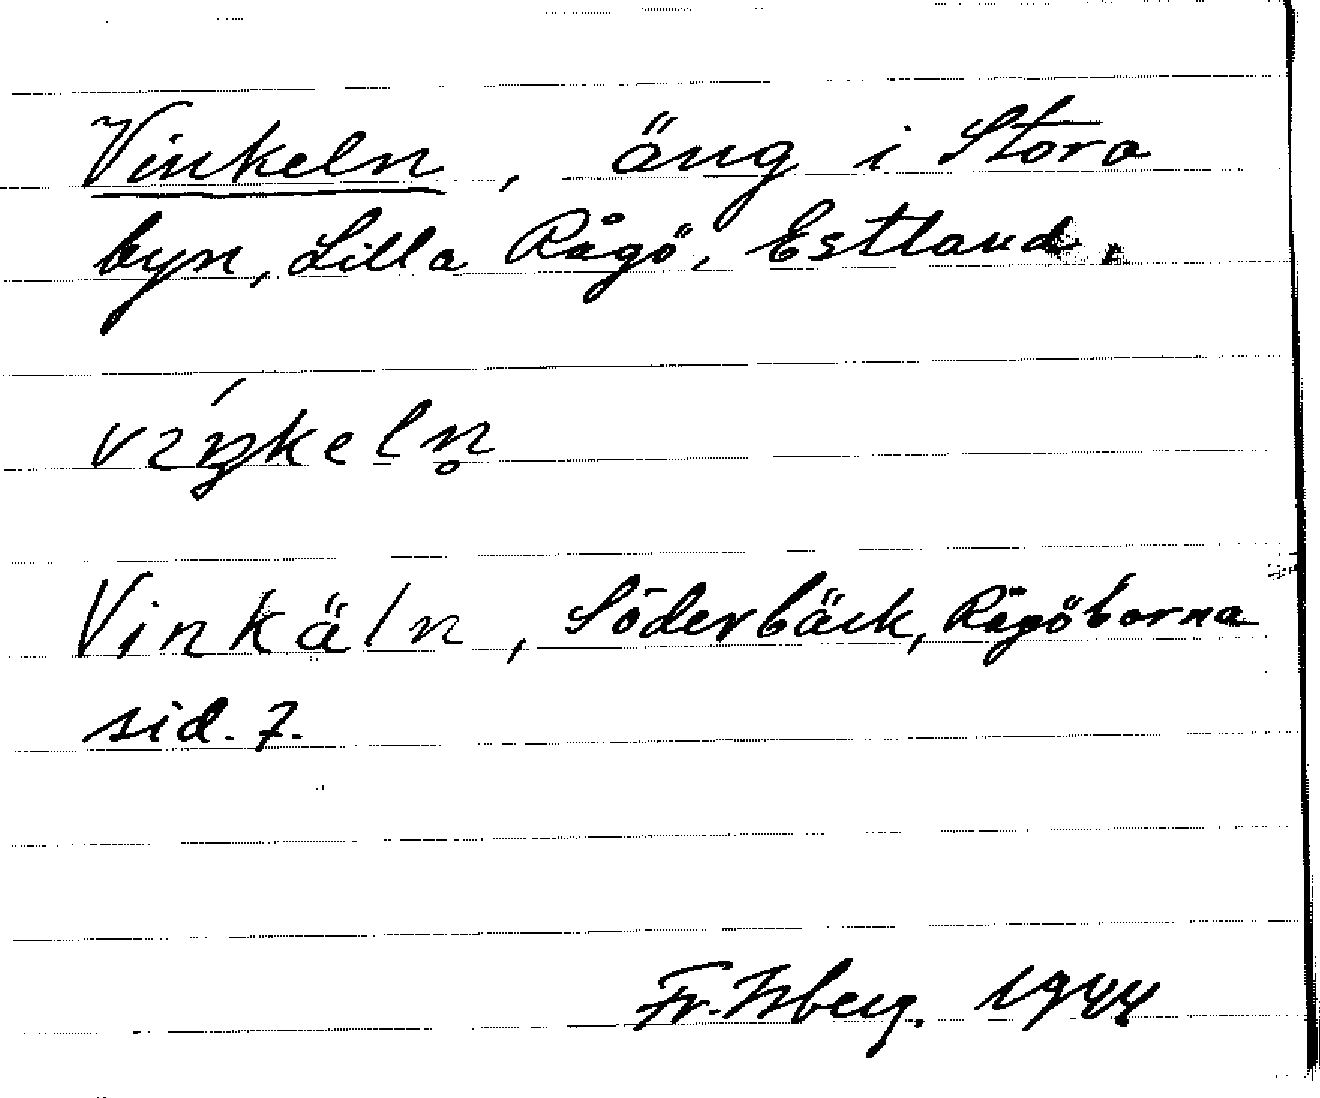 Vinkeln, äng i Stora
byn, Lilla Rågö, Estland.
vıńkeln̥
Vinkäln, Söderbäck, Rågöborna
sid. 7.
Fr. Isberg. 1944